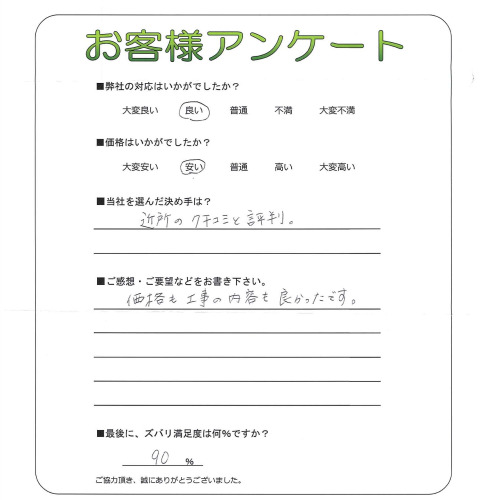 お客様アンケート
■弊社の対応はいかがでしたか？
大変良い 良い 普通 不満 大変不満
■価格はいかがでしたか？
大変安い 安い 普通 高い 大変高い
■当社を選んだ決め手は？
近所のクチコミと評判。
■ご感想・ご要望などをお書き下さい。
価格も工事の内容も良かったです。
■最後に、ズバリ満足度は何%ですか？
90 %
ご協力頂き、誠にありがとうございました。